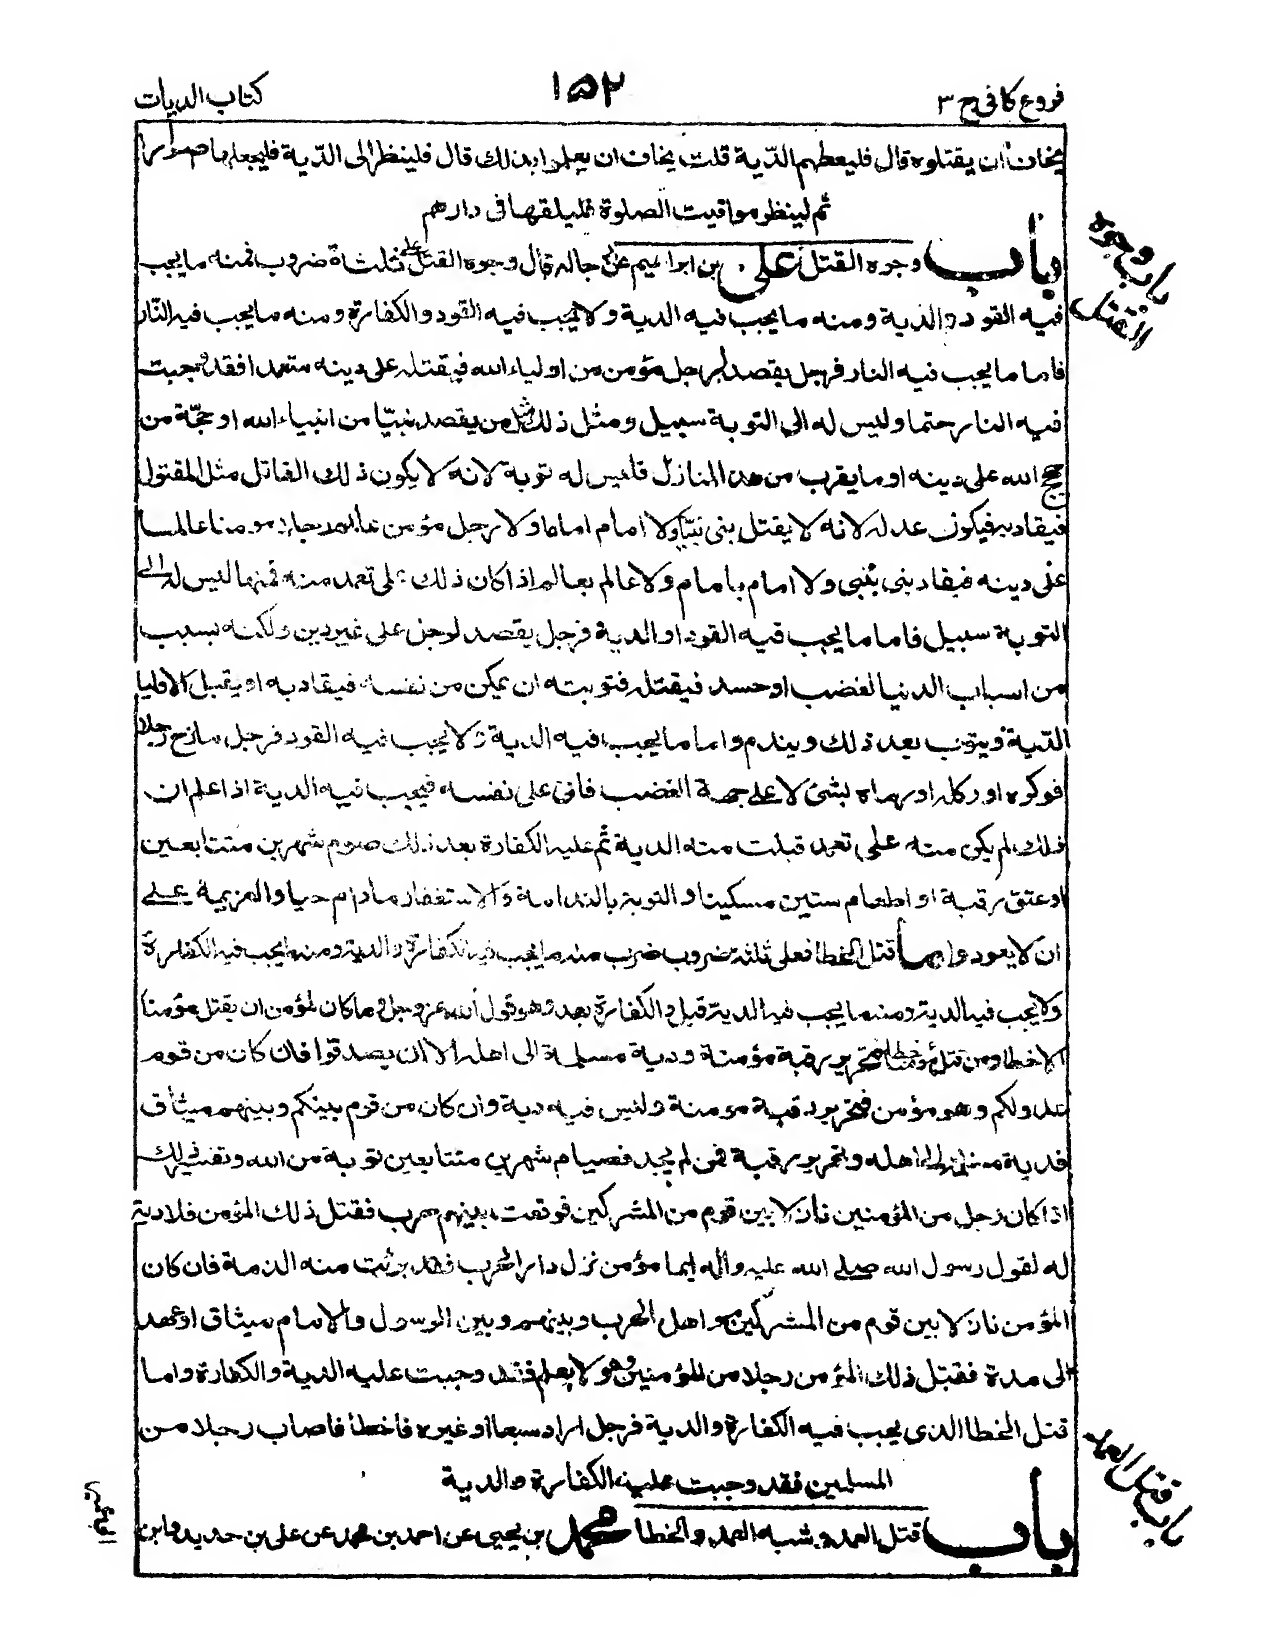 فروع کافی ج ۳
۱۵۲
كتاب الديات
يخاف ان يقتلوه قال فليعطهم الدّية قلت يخاف ان يعلموا بذلك قال فلينظر الى الدّية فليجعلها صررا
ثم لينظر مواقيت الصلوة فليلقها فى دارهم
باب وجوه القتل على بن ابراهيم عن رجاله قال وجوه القتل على ثلثة ضروب فمنه ما يجب
فيه القود والدية ومنه ما يجب فيه الدية ولا يجب فيه القود والكفارة ومنه ما يجب فيه النّار
فاما ما يجب فيه النار فرجل يقصد لرجل مؤمن من اولياء الله فيقتله على دينه متعمدا فقد وجبت
فيه النار حتما وليس له الى التوبة سبيل ومثل ذلك مثل من يقصد نبيّا من انبياء الله او حجّة من
حجج الله على دينه او ما يقرب من هذه المنازل فليس له توبة لانه لا يكون ذلك القاتل مثل المقتول
فيقاد به فيكون عدله لانه لا يقتل نبى نبيّا ولا امام اماما ولا رجل مؤمن عالم رجلا مومنا عالما
على دينه فيقاد نبى بنبى ولا امام بامام ولا عالم بعالم اذا كان ذلك على تعمد منه فمنها ليس له الى
التوبة سبيل فاما ما يجب فيه القود او الدية فرجل يقصد لرجل على غير دين ولكنه بسبب
من اسباب الدنيا لغضب او حسد فيقتله فتوبته ان يمكن من نفسه فيقاد به او يقبل الاوليا
الدّية ويتوب بعد ذلك ويندم واما ما يجب فيه الدية ولا يجب فيه القود فرجل مازح رجلا
فوكزه او ركله او رماه بشئ لا على جهة الغضب فاتى على نفسه فيجب فيه الدية اذا علم ان
ذلك لم يكن منه على تعمد قبلت منه الدية ثم عليه الكفارة بعد ذلك صوم شهرين متتابعين
او عتق رقبة او اطعام ستين مسكينا و التوبة بالندامة والاستغفار مادام حيا والعزيمة على
ان لا يعود واما قتل الخطا فعلى ثلثة ضروب ضرب منه ما يجب فيه الكفارة والدية ومنه ما يجب فيه الكفارة
ولا يجب فيه الدية ومنه ما يجب فيه الدية قبل والكفارة بعد وهو قول الله عز وجل وما كان لمؤمن ان يقتل مؤمنا
الا خطا ومن قتل مؤمنا خطا فتحرير رقبة مؤمنة ودية مسلمة الى اهله الا ان يصدقوا فان كان من قوم
عدو لكم وهو مؤمن فتحرير رقبة مومنة وليس فيه دية وان كان من قوم بينكم وبينهم ميثاق
فدية مسلمة الى اهله وتحرير رقبة فمن لم يجد فصيام شهرين متتابعين توبة من الله وتفسير ذلك
اذا كان رجل من المؤمنين نازلا بين قوم من المشركين فوقعت بينهم حرب فقتل ذلك المؤمن فلا دية
له لقول رسول الله صلى الله عليه واله ايما مؤمن نزل دار الحرب فقد برئت منه الذمة فان كان
المؤمن نازلا بين قوم من المشركين و اهل الحرب وبينهم وبين الرسول والامام ميثاق او عهد
الى مدة فقتل ذلك المؤمن رجلا من المؤمنين وهو لا يعلم فقد وجبت عليه الدية والكفارة واما
قتل الخطا الذى يجب فيه الكفارة والدية فرجل اراد سبعا او غيره فاخطأ فاصاب رجلا من
المسلمين فقد وجبت عليه الكفارة والدية
باب قتل العمد و شبه العمد والخطا محمد بن يحيى عن احمد بن محمد عن على بن حديد وابن
باب وجوه
القتل
باب قتل العمد